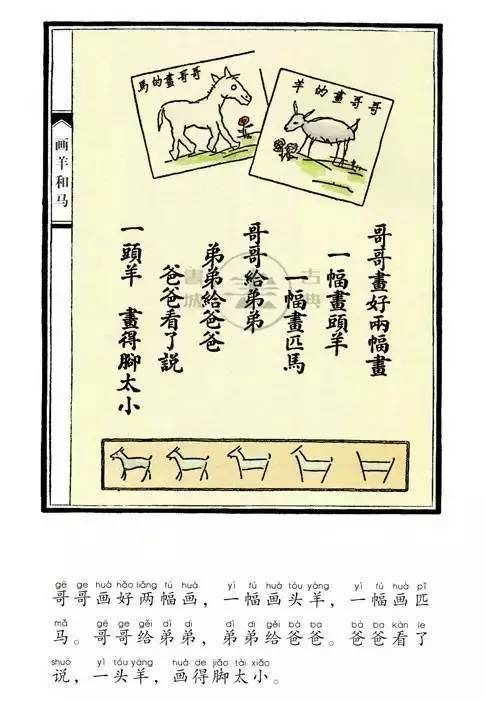 画羊和马
哥哥畫的馬
哥哥畫的羊
哥哥畫好兩幅畫
一幅畫頭羊
一幅畫匹馬
哥哥給弟弟
弟弟給爸爸
爸爸看了說
一頭羊 畫得腳太小
古典
書城
gē ge huà hǎo liǎng fú huà yì fú huà tóu yáng yì fú huà pǐ
哥哥画好两幅画，一幅画头羊，一幅画匹
mǎ gē ge gěi dì di dì di gěi bà ba bà ba kàn le
马。哥哥给弟弟，弟弟给爸爸。爸爸看了
shuō yì tóu yáng huà de jiǎo tài xiǎo
说，一头羊，画得脚太小。